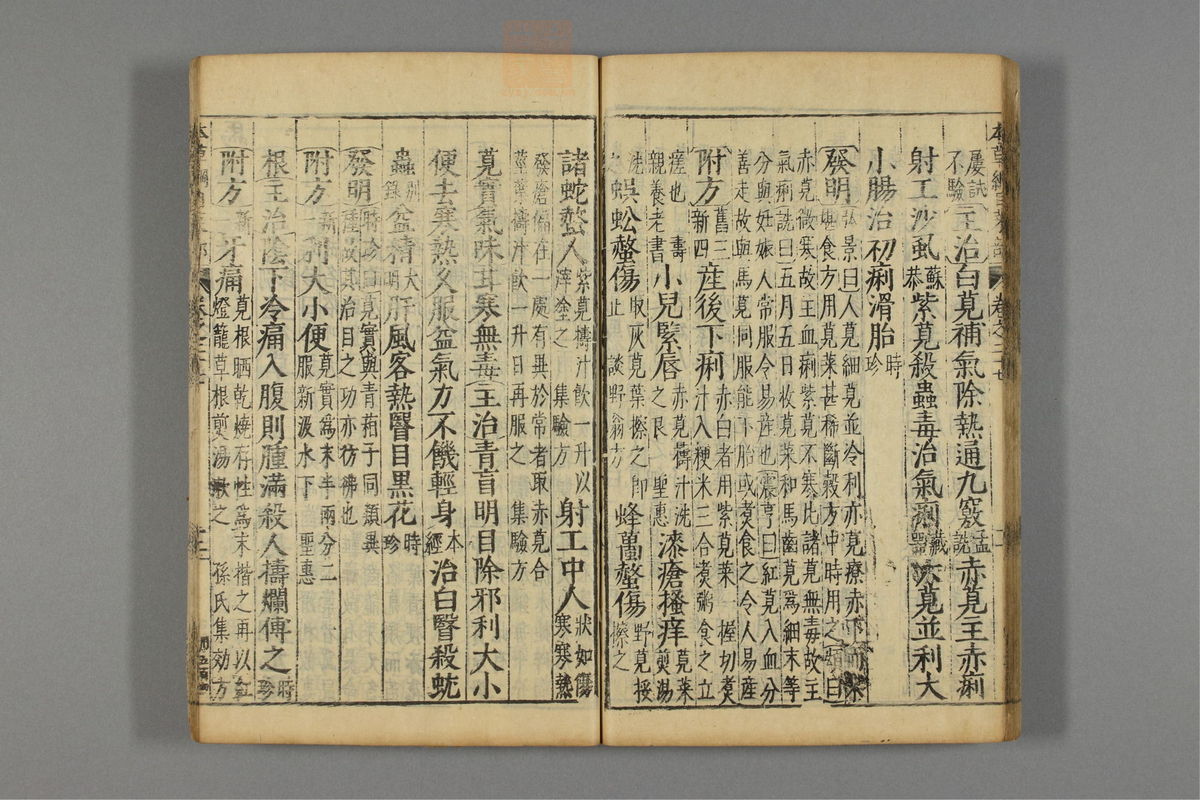 屢試不驗主治白莧補氣除熱通九竅孟詵赤莧主赤痢
射工沙虱蘇恭紫莧殺蟲毒治氣痢藏器六莧並利大
小腸治初痢滑胎時珍
發明弘景曰人莧細莧並冷利赤莧療赤下而不堪食方用莧菜甚稀斷穀方中時用之頌曰
赤莧微寒故主血痢紫莧不寒比諸莧無毒故主氣痢詵曰五月五日收莧菜和馬齒莧爲細末等
分與妊娠人常服令易産也震亨曰紅莧入血分善走故與馬莧同服能下胎或煑食之令人易産
附方舊三新四産後下痢赤白者用紫莧菜一握切煑汁入粳米三合煑粥食之立
瘥也壽親養老書小兒緊唇赤莧擣汁洗之良聖惠漆瘡搔痒莧菜煎湯洗
之蜈蚣螫傷取灰莧葉擦之即止談野翁方蜂蠆螫傷野莧挼擦之
諸蛇螫人紫莧擣汁飲一升以滓塗之集驗方射工中人狀如傷寒寒熱
發瘡偏在一處有異於常者取赤莧合莖葉擣汁飲一升日再服之集驗方
莧實氣味甘寒無毒主治青盲明目除邪利大小
便去寒熱久服益氣力不饑輕身本經治白瞖殺蚘
蟲别錄益精大明肝風客熱瞖目黒花時珍
發明時珍曰莧實與青葙子同類異種故其治目之功亦彷彿也
附方新一利大小便莧實爲末半兩分二服新汲水下聖惠
根主治陰下冷痛入腹則腫滿殺人擣爛傅之時珍
附方新一牙痛莧根晒乾燒存性爲末揩之再以紅燈籠草根煎湯漱之孫氏集効方